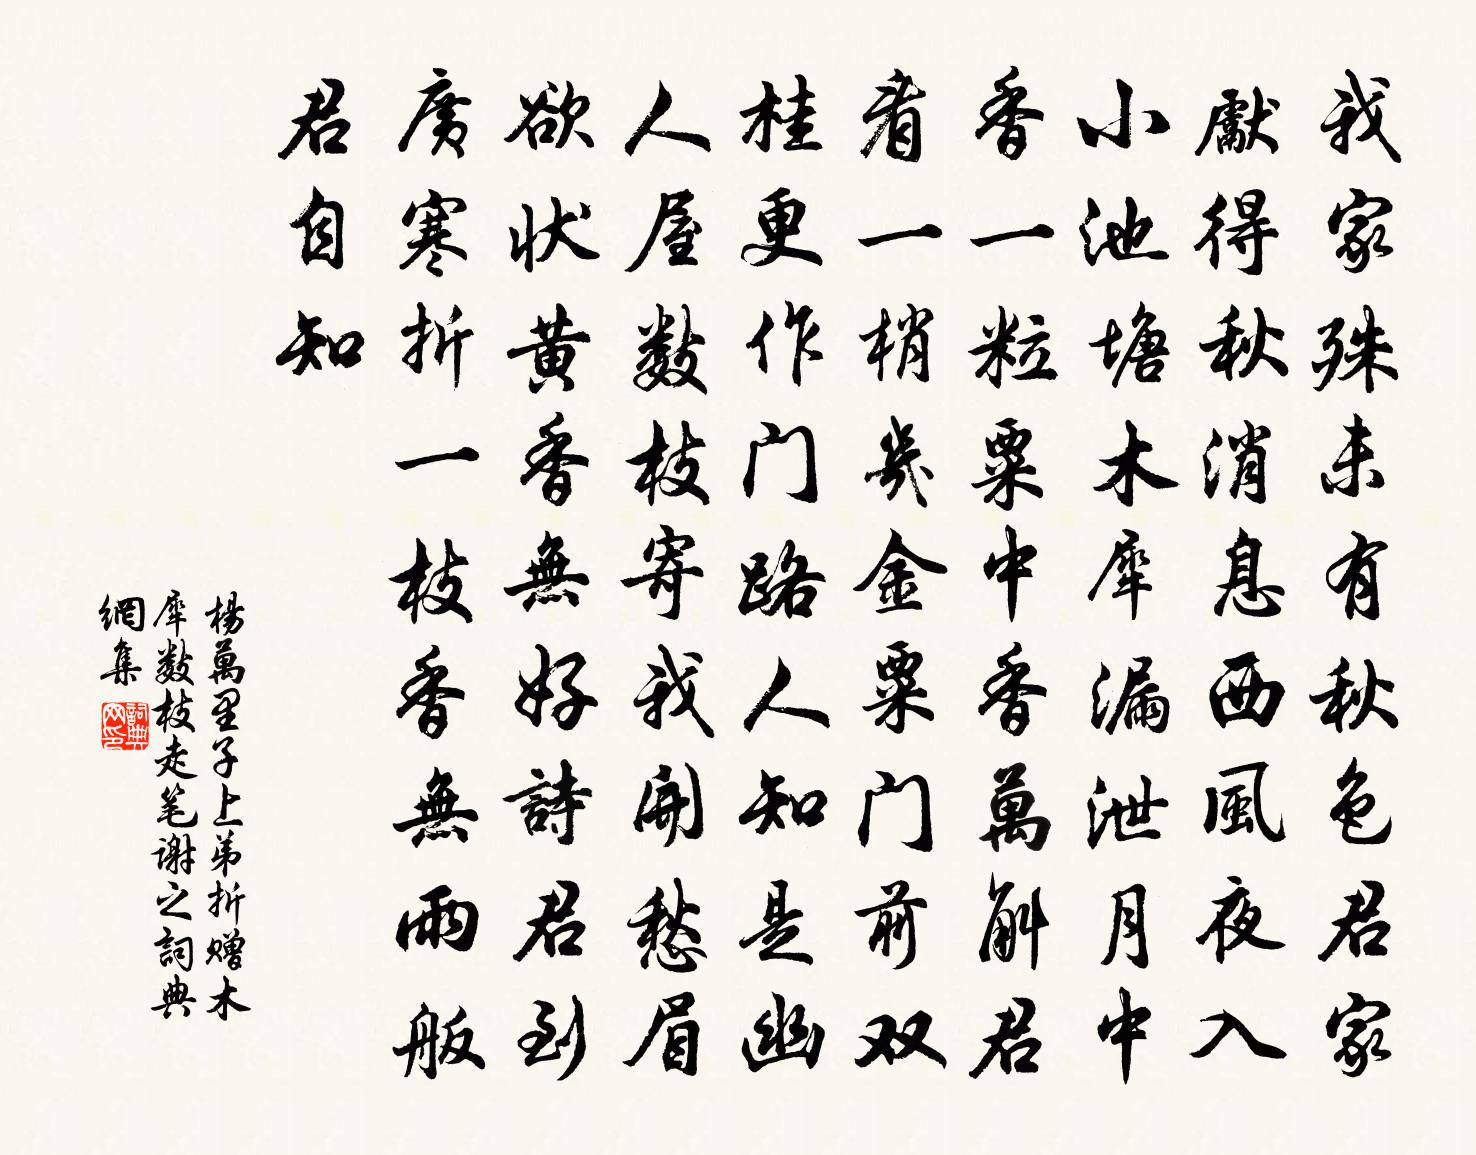 我家殊未有秋色君家
獻得秋消息西風夜入
小池塘木犀漏泄月中
香一粒粟中香萬斛君
看一梢幾金粟门前双
桂更作门路人知是幽
人屋數枝寄我開愁眉
欲状黄香無好詩君到
廣寒折一枝香無雨舨
君自知
楊萬里子上弟折赠木
犀數枝走笔谢之詞典
網集
詞典
网印